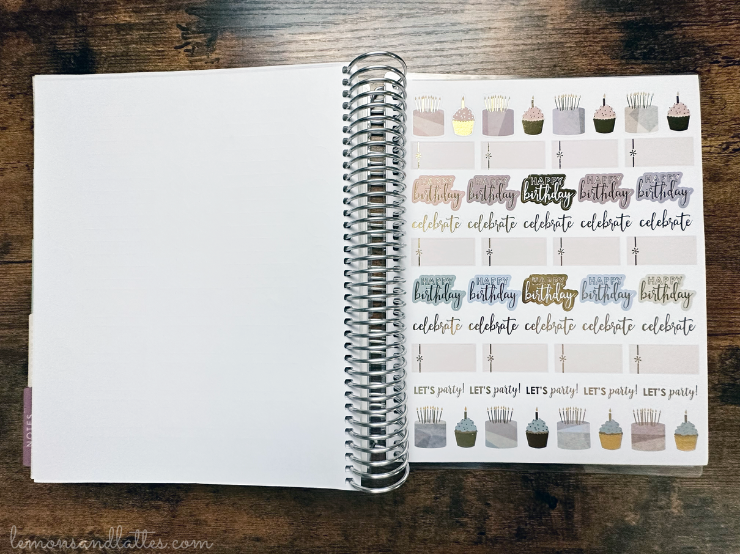 HAPPY birthday HAPPY birthday HAPPY birthday HAPPY birthday HAPPY birthday
celebrate celebrate celebrate celebrate celebrate
HAPPY birthday HAPPY birthday HAPPY birthday HAPPY birthday HAPPY birthday
celebrate celebrate celebrate celebrate celebrate
LET'S party! LET'S party! LET'S party! LET'S party! LET'S party!
NOTES
lemonsandlattes.com